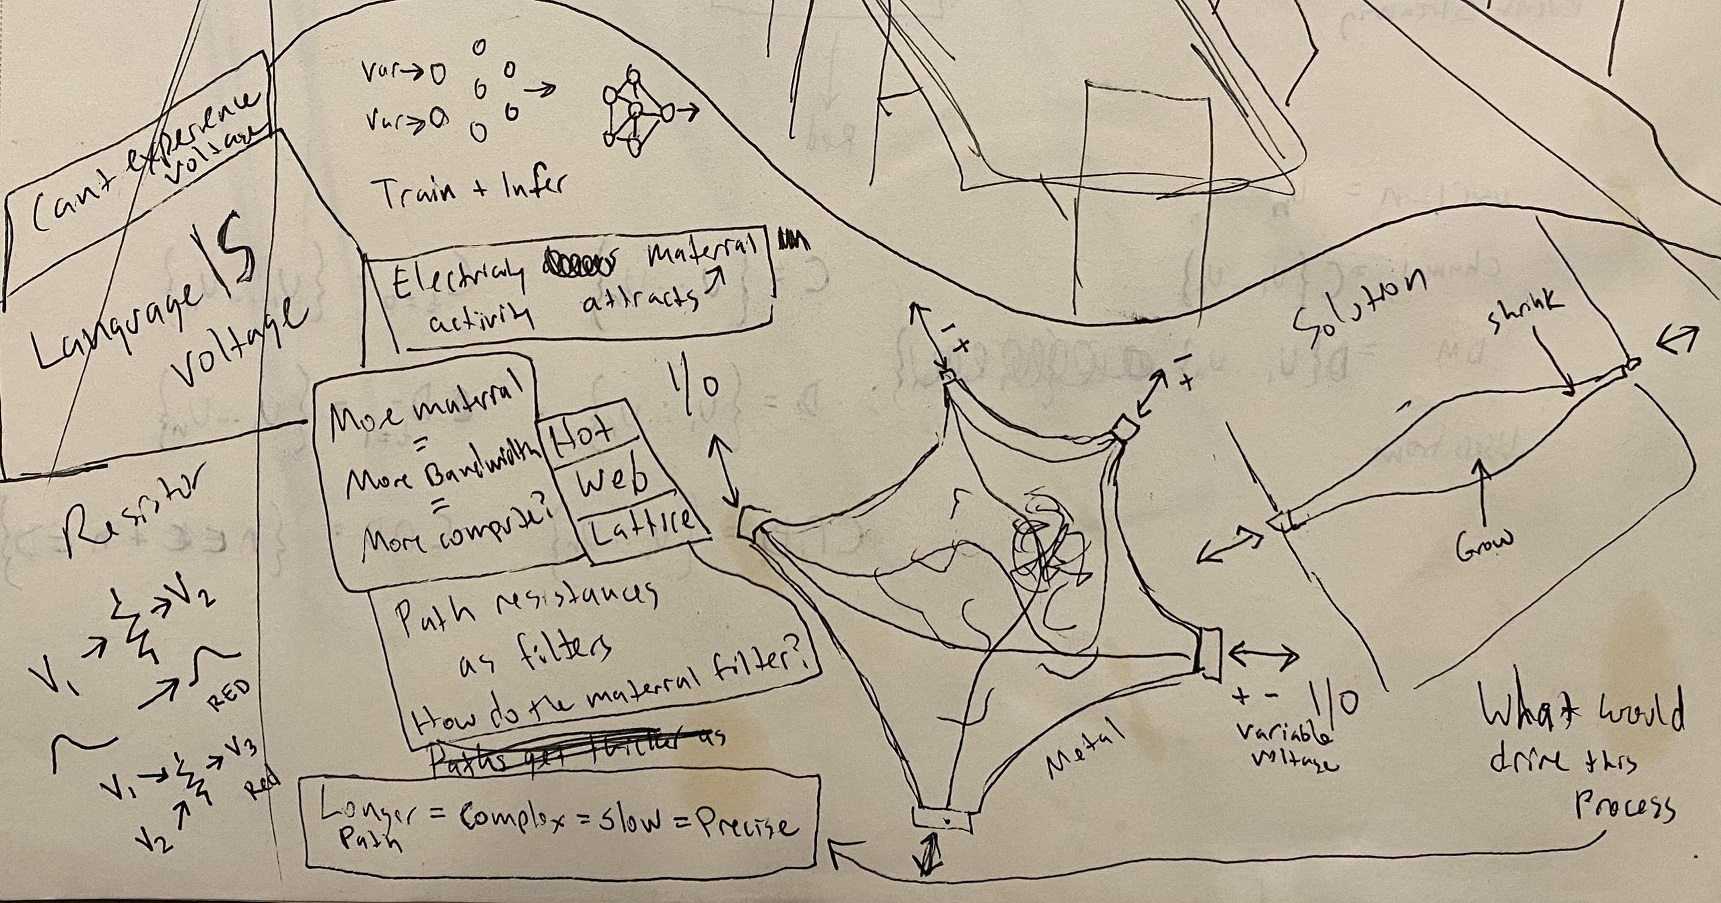 Cant experience
voltage
Language IS
voltage
Var→
Var→
Train + Infer
Electricity material
activity attracts
More material
=
More Bandwidth
=
More compute?
Hot
Web
Lattice
I/O
Path resistances
as filters
How do the material filter?
Paths get thicker as
Longer = complex = slow = Precise
Path
Resistor
V1 → V2
RED
V1 → V3
Red
V2
- +
- +
+ - I/O
variable
voltage
Metal
Solution
shrink
Grow
What would
drive this
Process